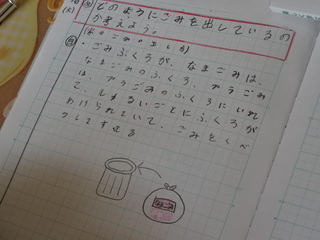 どのようにごみを出しているの
か考えよう。
ごみぶくろが、なまごみは、
なまごみのふくろ、プラごみ
は、プラごみのふくろにいれ
て、しゅるいごとにふくろが
わけられていて、ごみをくべ
つしてすてる